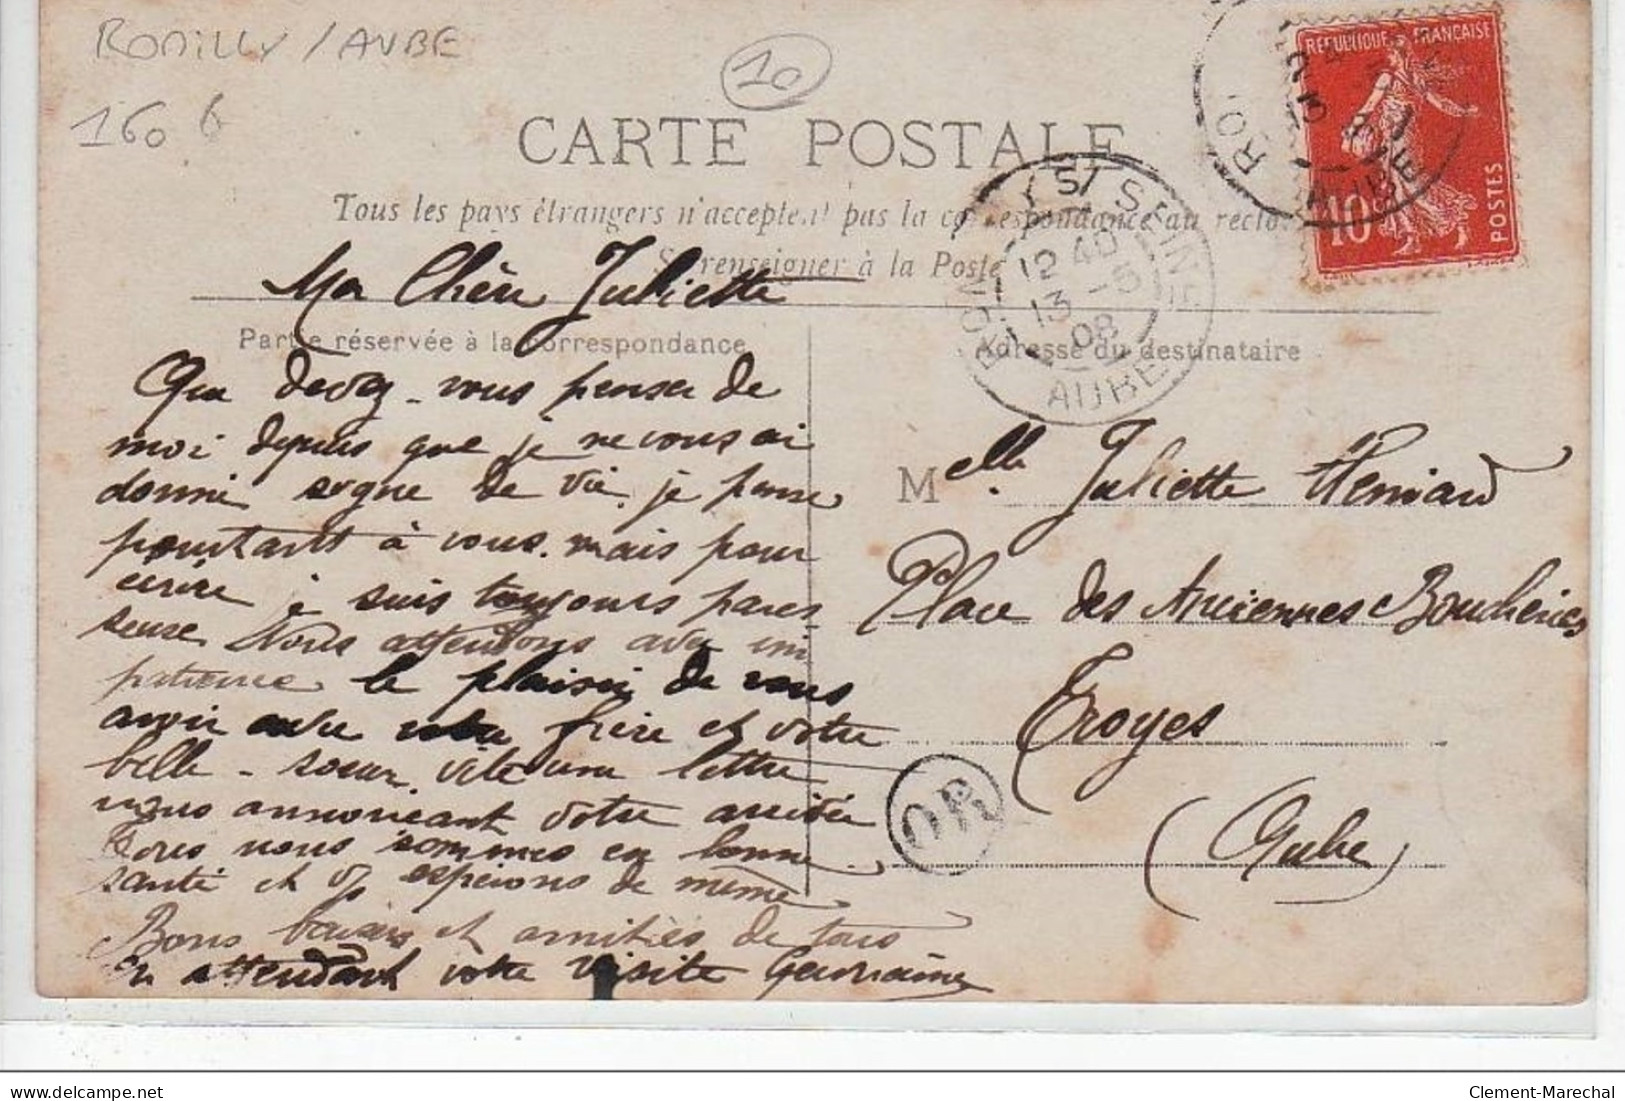 ROMILLY / AUBE
10
160 6
RÉPUBLIQUE FRANÇAISE
10
POSTES
AUBE
CARTE POSTALE
Tous les pays étrangers n'acceptent pas la correspondance au recto.
Se renseigner à la Poste
ROMILLY S/ SEINE
12 40
13 -5
08
AUBE
Ma Chère Juliette
Partie réservée à la correspondance
Adresse du destinataire
Que devez-vous penser de
moi depuis que je ne vous ai
donné signe de vie. je pense
pourtant à vous. mais pour
écrire je suis toujours pares
seuse Nous attendons avec im
patience le plaisir de vous
avoir votre frère et votre
belle-soeur. vite une lettre
nous annoncant votre arrivée
Tous nous sommes en bonne
santé et espérons de même
Bons baisers et amitiés de tous
en attendant votre visite Germaine
Melle Juliette
Place des Anciennes Boucheries
Troyes
(Aube)
OR
delcampe.net
Clement-Marechal